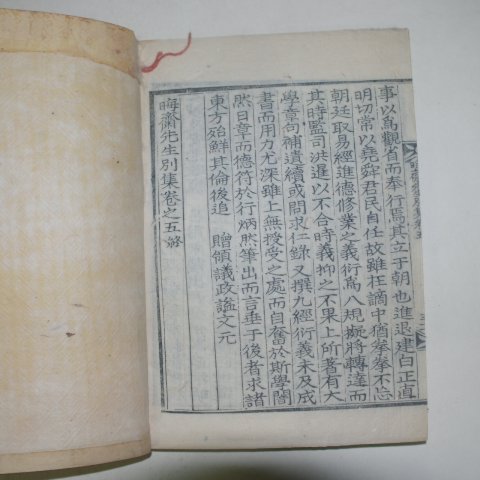 事以爲觀省而奉行焉其立于朝也進退建白正直
明切常以堯舜君民自任故雖在謫中猶拳拳不忘
朝廷取易經進德修業之義衍爲八規擬將轉達而
其時監司洪暹以不合時義抑之不果上所著有大
學章句補遺續或問求仁錄又撰九經衍義未及成
書而用力尤深雖上無授受之處而自奮於斯學闇
然日章而德符於行炳然筆出而言垂于後者求諸
東方殆鮮其倫後追贈領議政諡文元
晦齋先生別集卷之五終